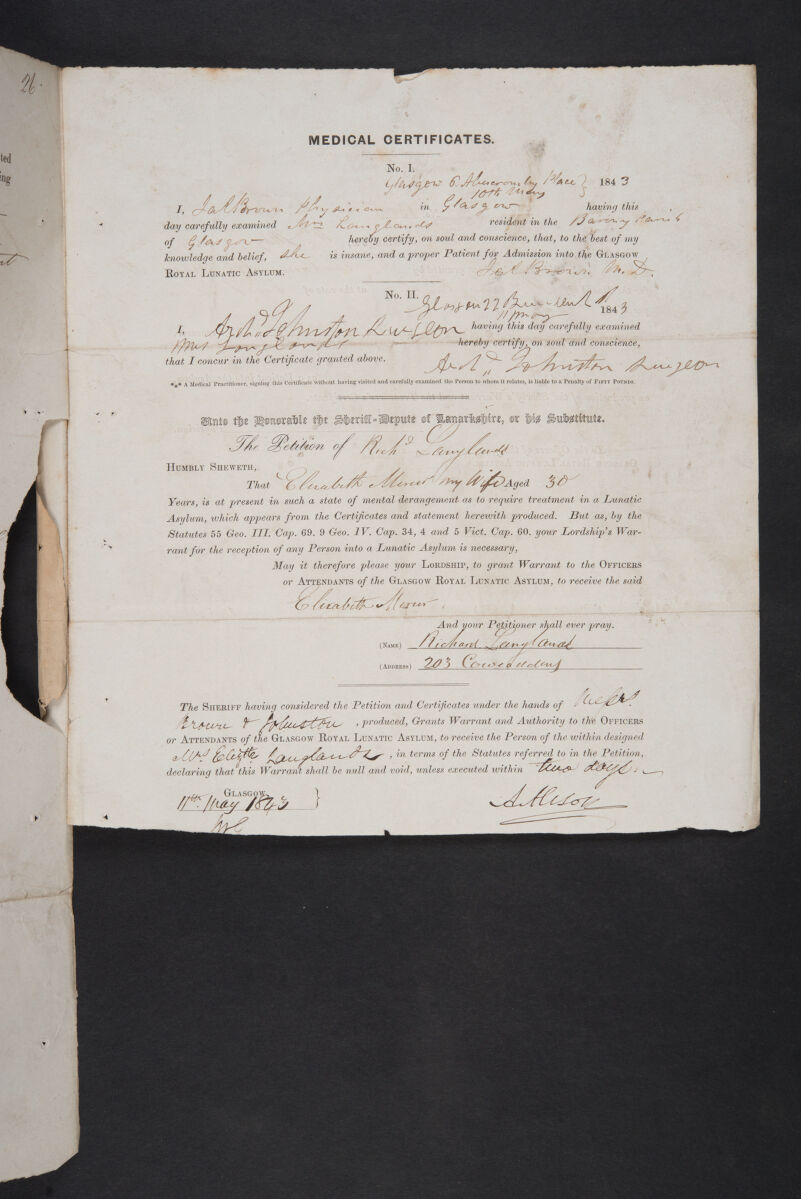 26.
ted
ing
MEDICAL CERTIFICATES.
No. I.
Glasgow 6. Abercromby Place } 1843
10th May
I, Jas Brown Physician in Glasgow having this
day carefully examined Mrs Langlands resident in the Barony Parish
of Glasgow hereby certify, on soul and conscience, that, to the best of my
knowledge and belief, she is insane, and a proper Patient for Admission into the GLASGOW
ROYAL LUNATIC ASYLUM. Brown M.D.
No. II. Glasgow 22
11 May 1843
I, Archd Johnston Surgeon having this day carefully examined
Mrs Langlands hereby certify, on soul and conscience,
that I concur in the Certificate granted above. Archd Johnston Surgeon
*** A Medical Practitioner, signing this Certificate without having visited and carefully examined the Person to whom it relates, is liable to a Penalty of FIFTY POUNDS.
Unto the Honorable the Sheriff-Depute of Lanarkshire, or his Substitute.
The Petition of Richd Langlands
HUMBLY SHEWETH,
That Elizabeth my Wife Aged 30
Years, is at present in such a state of mental derangement as to require treatment in a Lunatic
Asylum, which appears from the Certificates and statement herewith produced. But as, by the
Statutes 55 Geo. III. Cap. 69. 9 Geo. IV. Cap. 34, 4 and 5 Vict. Cap. 60. your Lordship's War-
rant for the reception of any Person into a Lunatic Asylum is necessary,
May it therefore please your LORDSHIP, to grant Warrant to the OFFICERS
or ATTENDANTS of the GLASGOW ROYAL LUNATIC ASYLUM, to receive the said
Elizabeth
And your Petitioner shall ever pray.
(NAME) Richard Langlands
(ADDRESS) 203 Cowcaddens
The SHERIFF having considered the Petition and Certificates under the hands of
Brown & Johnston, produced, Grants Warrant and Authority to the OFFICERS
or ATTENDANTS of the GLASGOW ROYAL LUNATIC ASYLUM, to receive the Person of the within designed
Mrs Elizth Langlands, in terms of the Statutes referred to in the Petition,
declaring that this Warrant shall be null and void, unless executed within two days.
GLASGOW,
11th May 1843 } A Alison